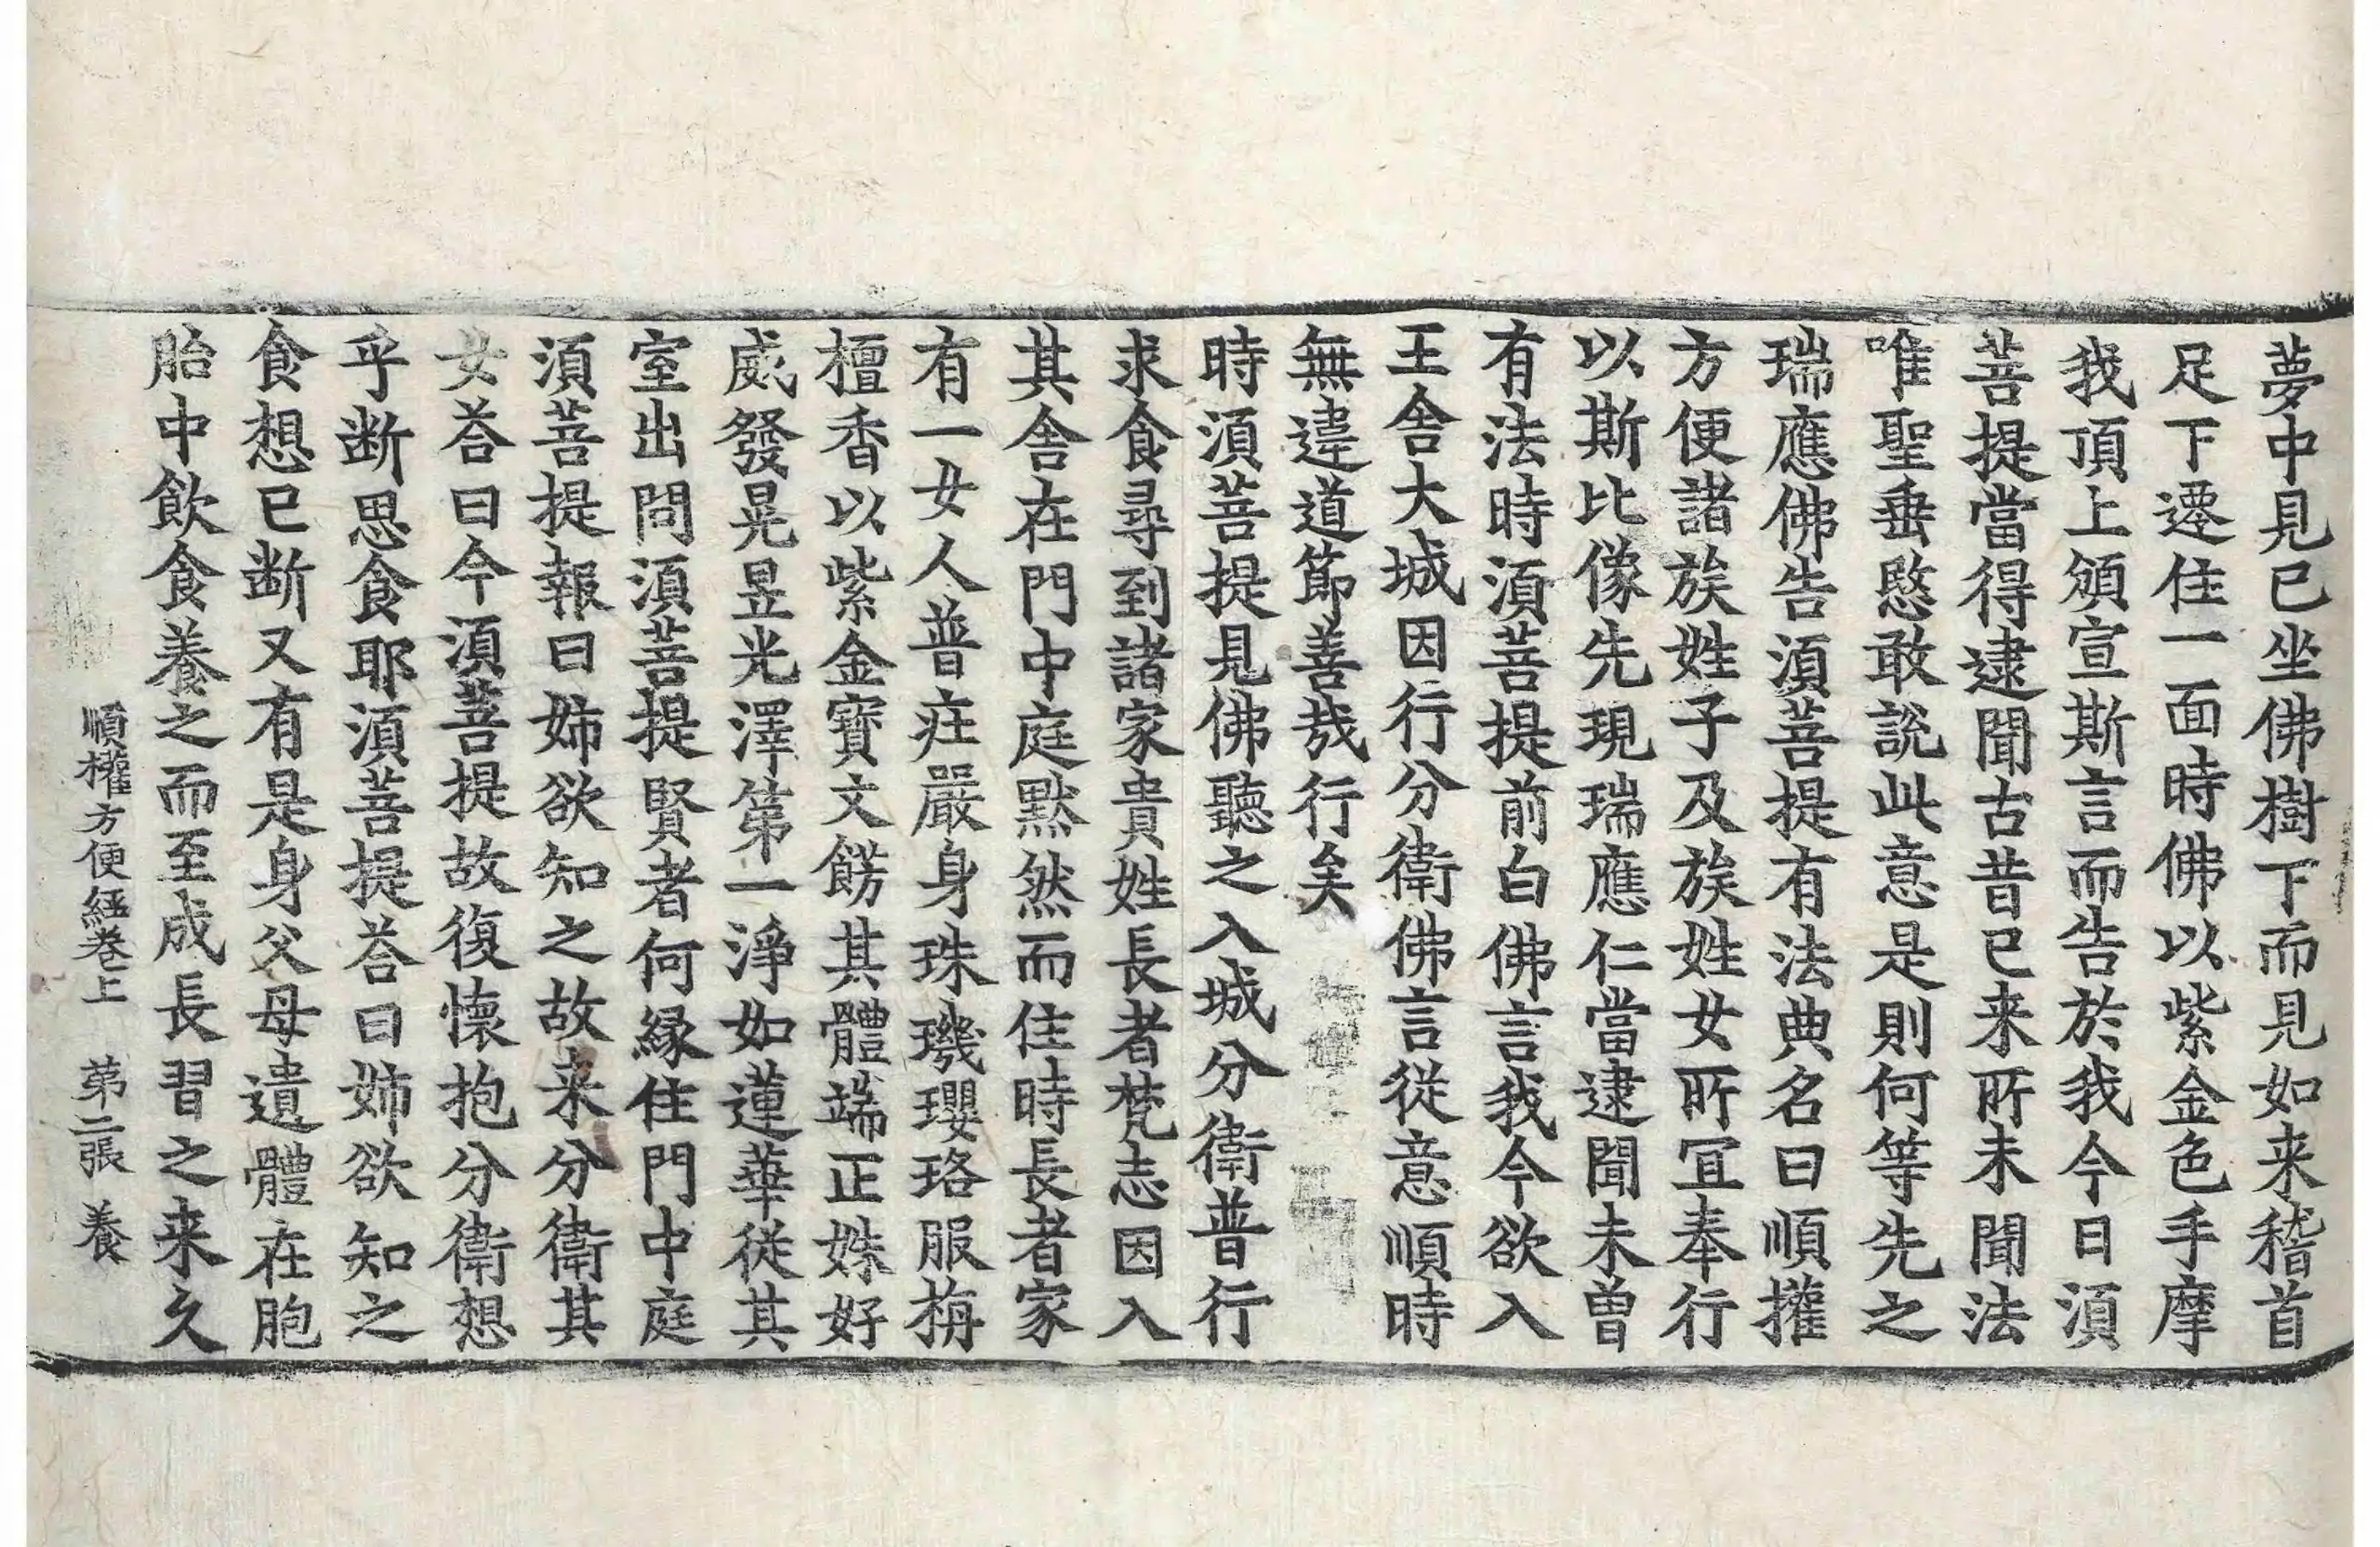 夢中見已坐佛樹下而見如来稽首
足下遷住一面時佛以紫金色手摩
我頂上頒宣斯言而告於我今日湏
菩提當得逮聞古昔已来所未聞法
唯聖垂愍敢說此意是則何等先之
瑞應佛告湏菩提有法典名曰順權
方便諸族姓子及族姓女所冝奉行
以斯比像先現瑞應仁當逮聞未曽
有法時湏菩提前白佛言我今欲入
王舍大城因行分衛佛言従意順時
無違道節善㢤行矣
時湏菩提見佛聽之入城分衛普行
求食尋到諸家貴姓長者梵志因入
其舍在門中庭默然而住時長者家
有一女人普疘嚴身珠璣瓔珞服栴
檀香以紫金寶文餝其體端正姝好
威發晃昱光澤第一淨如蓮華従其
室出問湏菩提賢者何縁住門中庭
湏菩提報曰姉欲知之故来分衛其
女荅曰今湏菩提故復懷抱分衛想
乎断思食耶湏菩提荅曰姉欲知之
食想已断又有是身父母遺體在胞
胎中飲食養之而至成長習之来久
順權方便經卷上 苐二張 養